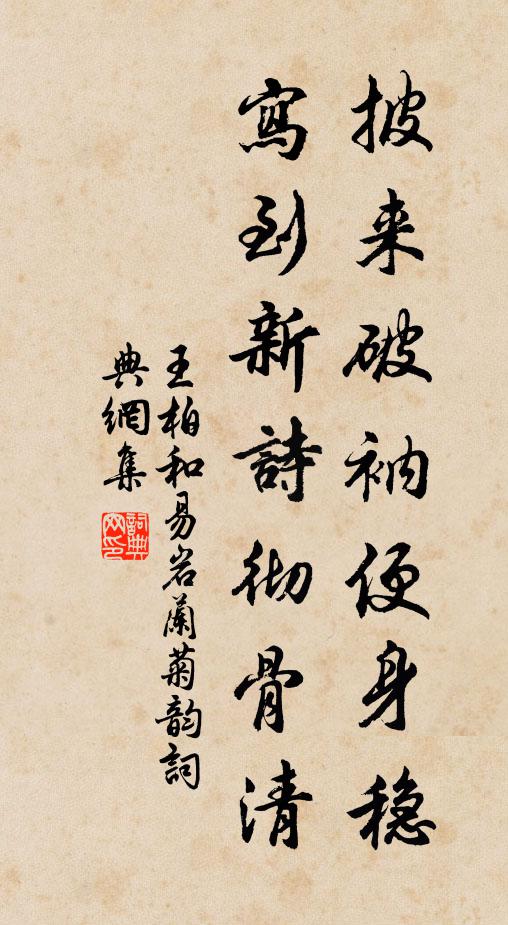 披来破衲便身稳
寫到新詩彻骨清
王柏和易岩蘭菊韵詞
典網集
詞典
网印